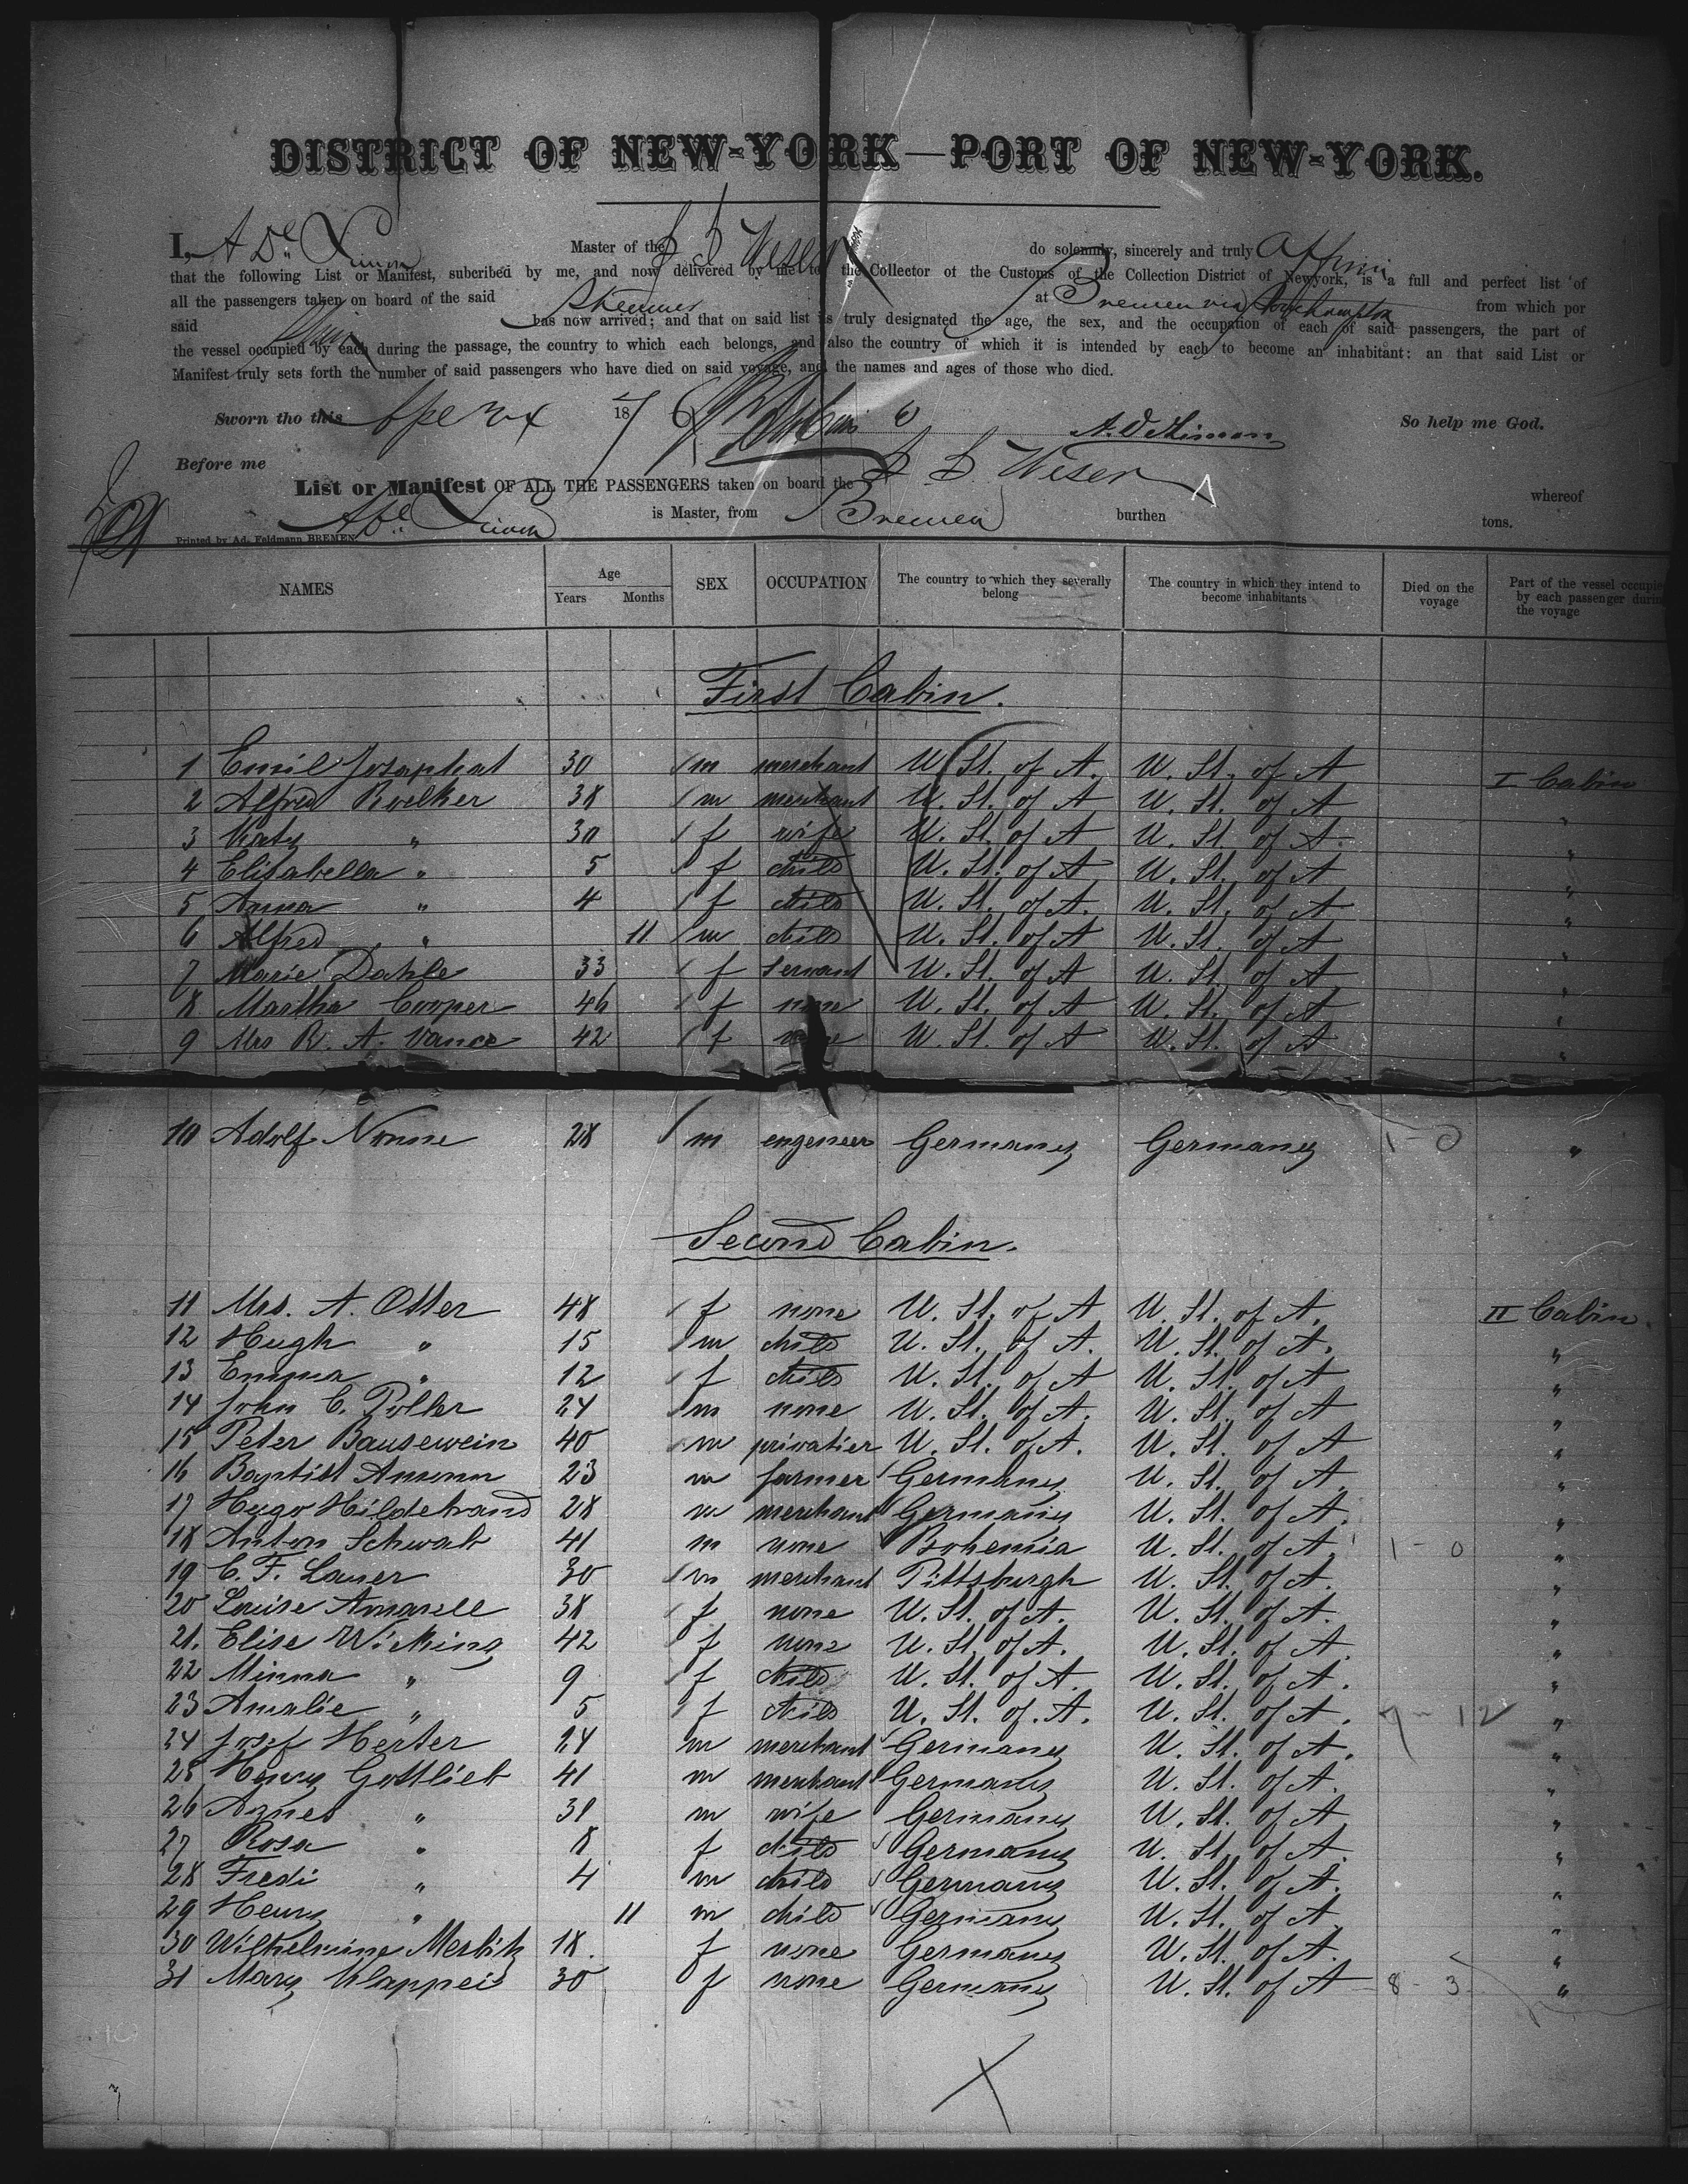 DISTRICT OF NEW-YORK—PORT OF NEW-YORK.
I, Master of the S S Weser do solemnly, sincerely and truly affirm
that the following List or Manifest, subcribed by me, and now delivered by me to the Collector of the Customs of the Collection District of Newyork, is a full and perfect list of
all the passengers taken on board of the said Steamer at Bremen via Southampton from which por
said has now arrived; and that on said list is truly designated the age, the sex, and the occupation of each of said passengers, the part of
the vessel occupied by each during the passage, the country to which each belongs, and also the country of which it is intended by each to become an inhabitant: an that said List or
Manifest truly sets forth the number of said passengers who have died on said voyage, and the names and ages of those who died.
Sworn tho this 187 So help me God.
Before me
List or Manifest OF ALL THE PASSENGERS taken on board the S S Weser whereof
is Master, from Bremen burthen tons.
Printed by Ad. Feldmann BREMEN.
NAMES Age Years Months SEX OCCUPATION The country to which they severally belong The country in which they intend to become inhabitants Died on the voyage Part of the vessel occupied by each passenger during the voyage
First Cabin.
1 Emil Josaphat 30 m merchant U. St. of A. U. St. of A I Cabin
2 Alfred Roelker 38 m merchant U. St. of A U. St. of A "
3 Katy " 30 f wife U. St. of A U. St. of A. "
4 Elisabella " 5 f child U. St. of A U. St. of A "
5 Anna " 4 f child U. St. of A. U. St. of A "
6 Alfred " 11 m child U. St. of A U. St. of A "
7 Marie Dahle 33 f servant U. St. of A U. St. of A "
8 Martha Cooper 46 f none U. St. of A U. St. of A "
9 Mrs R. A. Vance 42 f none U. St. of A U. St. of A "
10 Adolf Nonne 28 m engeneer Germany Germany 1 - 0 "
Second Cabin.
11 Mrs. A. Otter 48 f none U. St. of A U. St. of A. II Cabin.
12 Hugh " 15 m child U. St. of A. U. St. of A. "
13 Emma " 12 f child U. St. of A U. St. of A "
14 John C. 24 m none U. St. of A. U. St. of A "
15 Peter Bausewein 40 m privatier U. St. of A. U. St. of A "
16 Baptist 23 m farmer Germany U. St. of A "
17 Hugo Hildebrand 28 m merchant Germany U. St. of A. "
18 Anton Schwab 41 m none Bohemia U. St. of A. 1 - 0 "
19 C. F. Lauer 30 m merchant Pittsburgh U. St. of A. "
20 Louise Amarell 38 f none U. St. of A. U. St. of A. "
21. Elise Wicking 42 f none U. St. of A. U. St. of A "
22 Minna " 9 f child U. St. of A. U. St. of A. "
23 Amalie " 5 f child U. St. of. A. U. St. of A. 7 - 12 "
24 Josef Herter 24 m merchant Germany U. St. of A. "
25 Henry Gottlieb 41 m merchant Germany U. St. of A. "
26 Agnes " 31 m wife Germany U. St. of A "
27 Rosa " 8 f child Germany U. St. of A. "
28 Fredi " 4 m child Germany U. St. of A. "
29 Henry " 11 m child Germany U. St. of A "
30 Wilhelmine Merbitz 18. f none Germany U. St. of A. "
31 Mary Klappeis 30 f none Germany U. St. of A 8 - 3 "